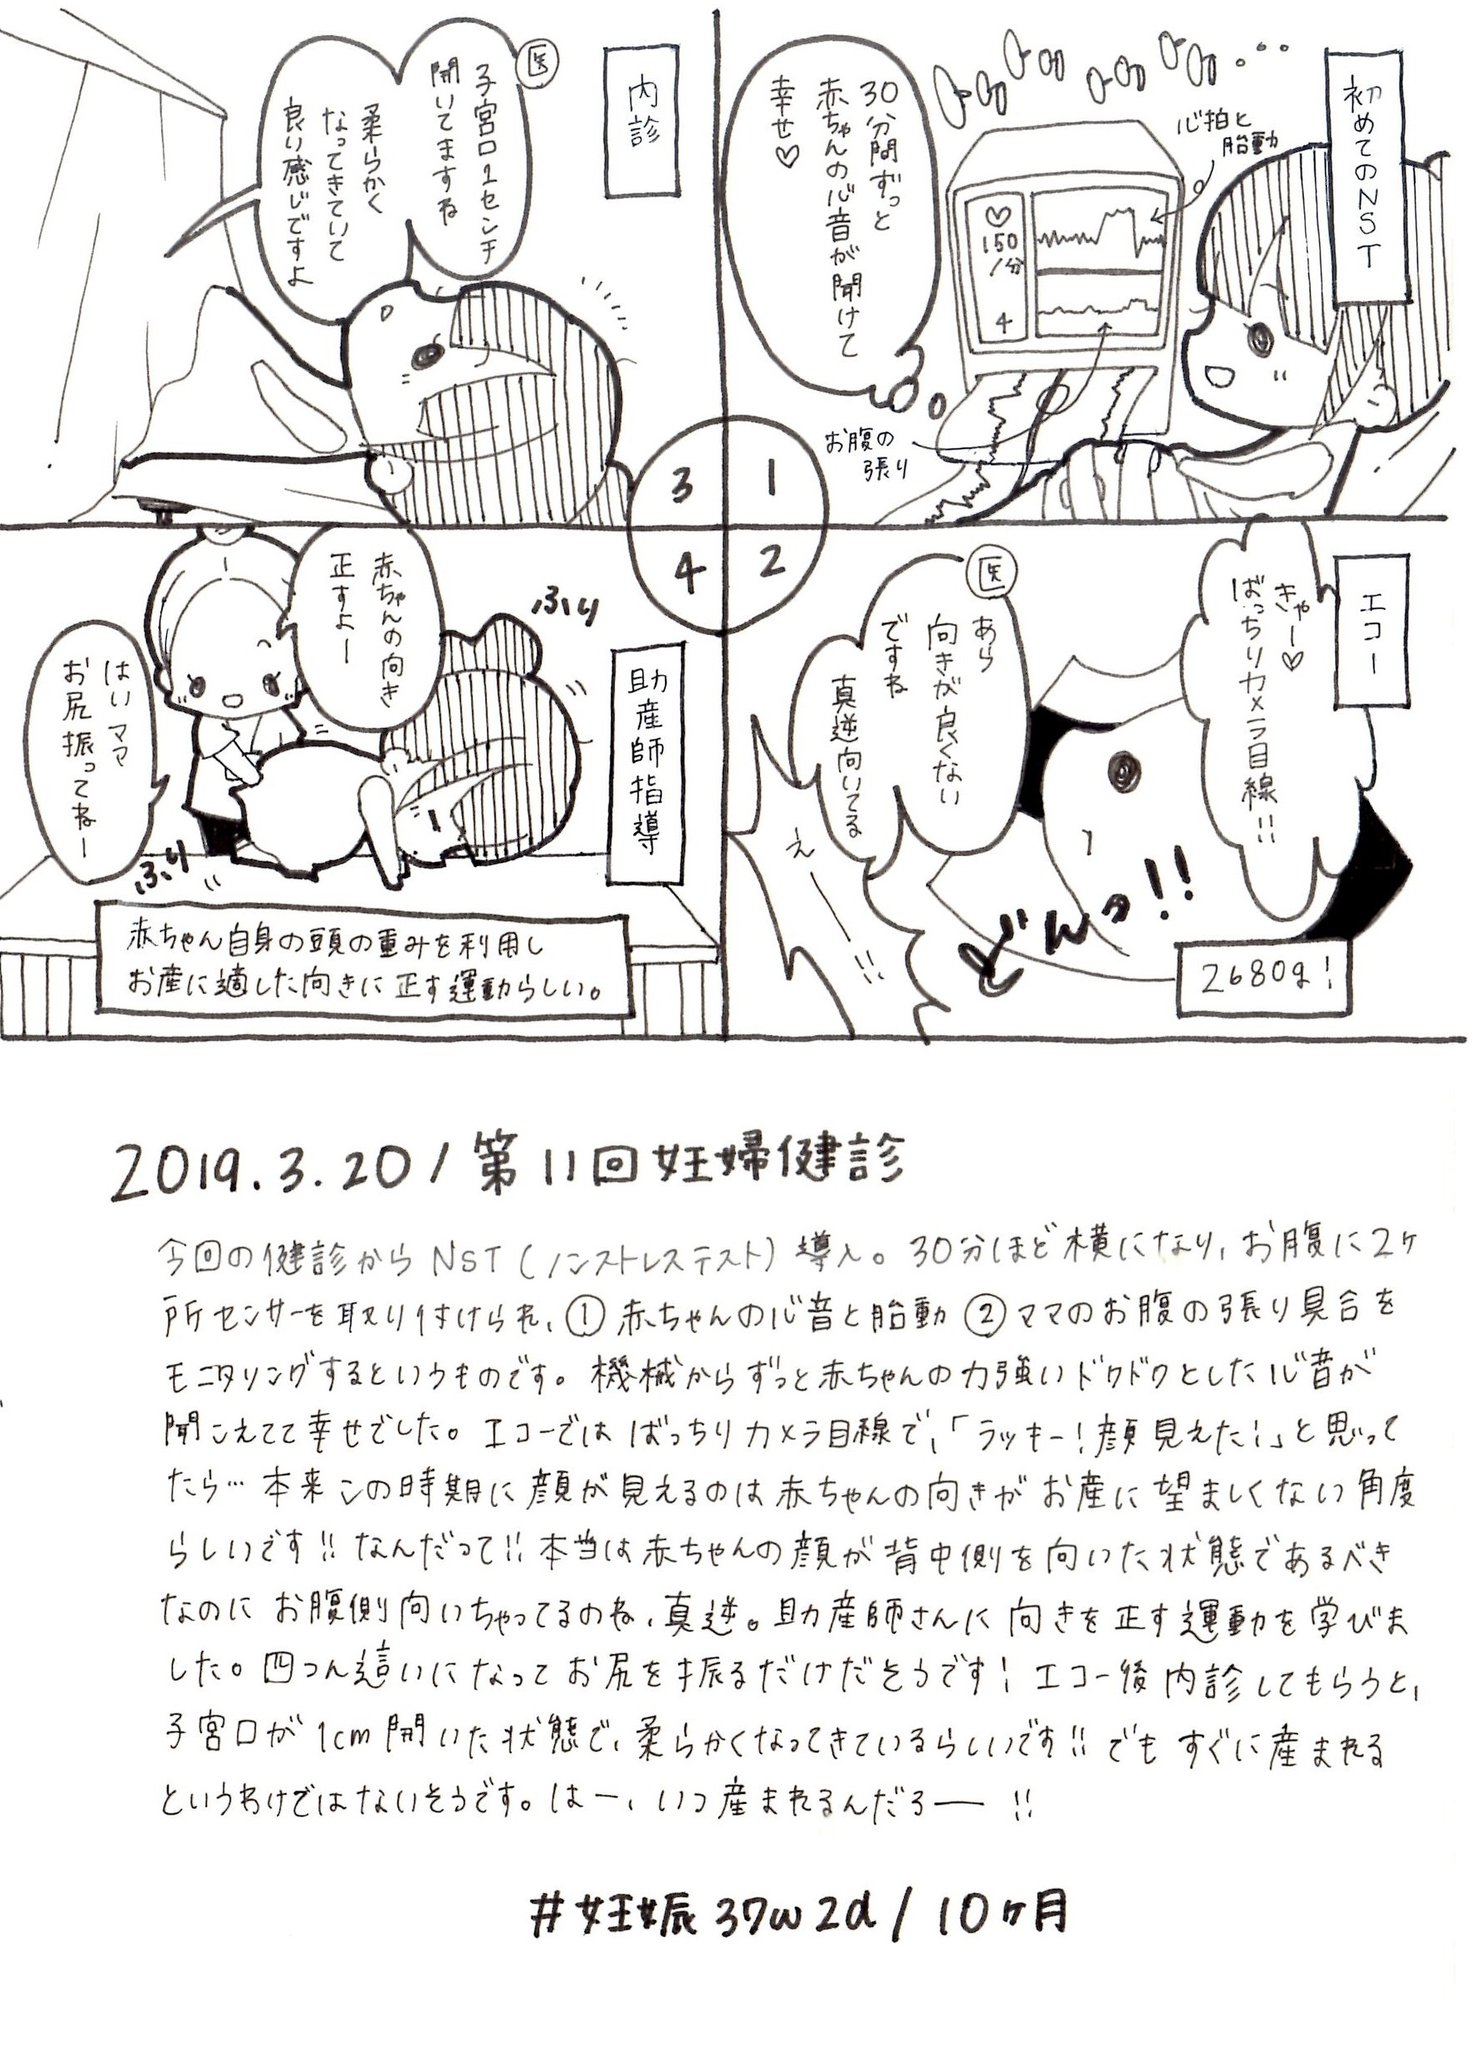 初めてのNST
ドッドッドッドッ…
心拍と
胎動
30分間ずっと
赤ちゃんの心音が聞けて
幸せ♡
♡
150
/分
4
お腹の
張り
エコー
きゃー♡
ばっちりカメラ目線!!
医
あら
向きが良くない
ですね
真逆向いてる
どんッ!!
え――!!
2680g!
内診
医
子宮口1センチ
開いてますね
柔らかく
なってきていて
良い感じですよ
助産師指導
赤ちゃんの向き
正すよー
はいママ
お尻振ってねー
ふり
ふり
赤ちゃん自身の頭の重みを利用し
お産に適した向きに正す運動らしい。
3 1
4 2
2019.3.20/第11回妊婦健診
今回の健診からNST(ノンストレステスト)導入。30分ほど横になり、お腹に2ヶ
所センサーを取り付けられ、①赤ちゃんの心音と胎動②ママのお腹の張り具合を
モニタリングするというものです。機械からずっと赤ちゃんの力強いドクドクとした心音が
聞こえてて幸せでした。エコーではばっちりカメラ目線で、「ラッキー!顔見えた!」と思って
たら…本来この時期に顔が見えるのは赤ちゃんの向きがお産に望ましくない角度
らしいです!!なんだって!!本当は赤ちゃんの顔が背中側を向いた状態であるべき
なのにお腹側向いちゃってるのね、真逆。助産師さんに向きを正す運動を学びま
した。四つん這いになってお尻を振るだけだそうです!エコー後内診してもらうと、
子宮口が1cm開いた状態で、柔らかくなってきているらしいです!!でもすぐに産まれる
というわけではないそうです。はー、いつ産まれるんだろ――!!
#妊娠37w2d/10ヶ月